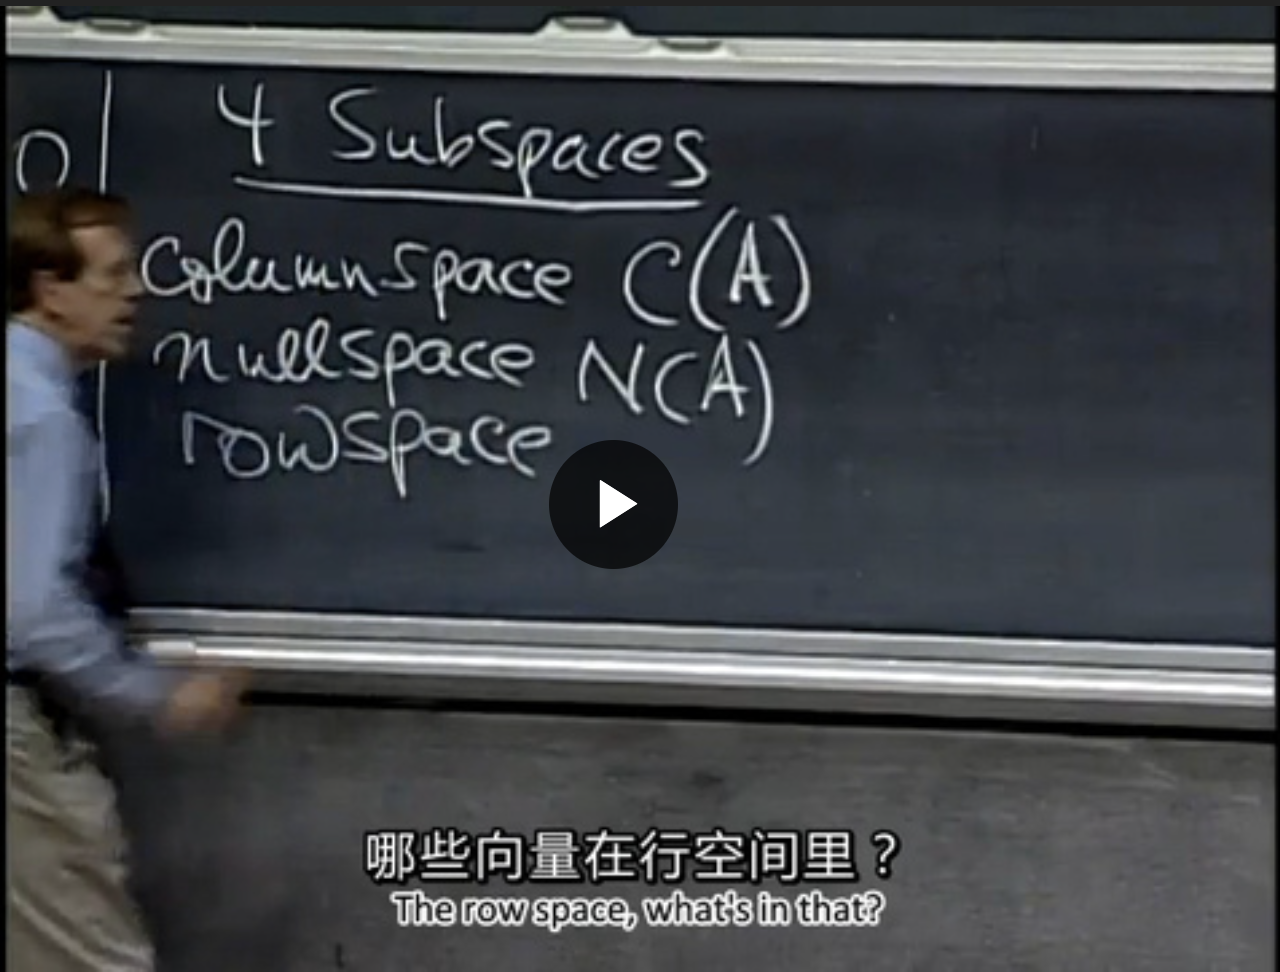 0
4 Subspaces
columnspace C(A)
nullspace N(A)
rowspace
哪些向量在行空间里？
The row space, what's in that?